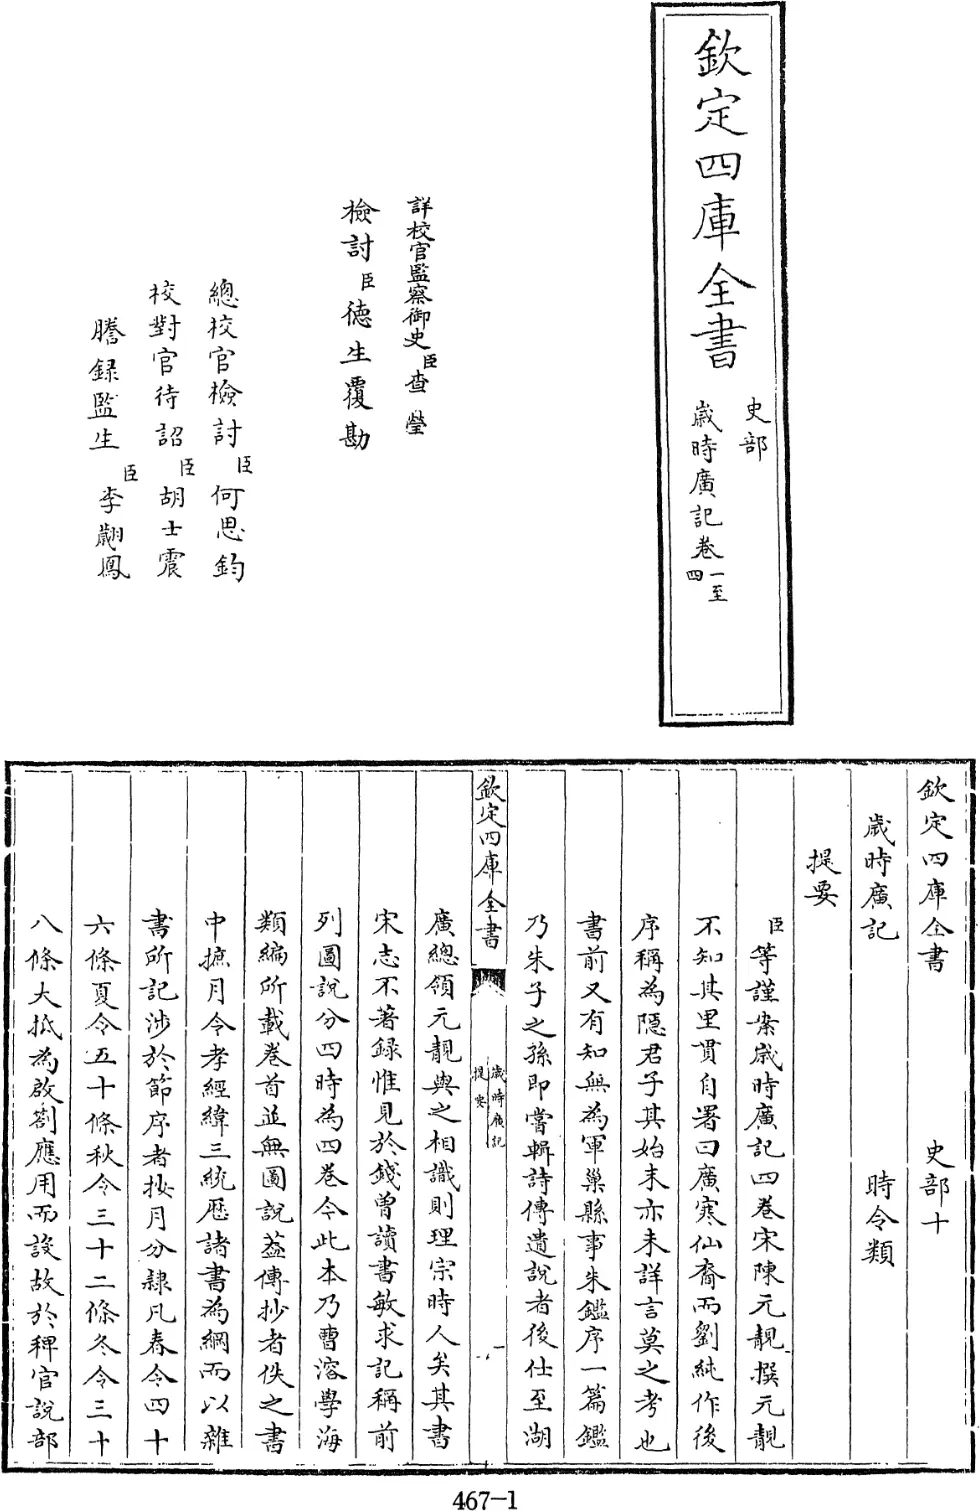 欽定四庫全書
史部
歲時廣記卷一至四
詳校官監察御史臣查瑩
檢討臣德生覆勘
總校官檢討臣何思鈞
校對官待詔臣胡士震
謄錄監生臣李翽鳳
欽定四庫全書　史部十
歲時廣記　時令類
提要
臣等謹案歲時廣記四卷宋陳元靚撰元靚
不知其里貫自署曰廣寒仙裔而劉純作後
序稱為隱君子其始末亦未詳言莫之考也
書前又有知無為軍巢縣事朱鑑序一篇鑑
乃朱子之孫即嘗輯詩傳遺說者後仕至湖
欽定四庫全書
歲時廣記
提要
一
廣總領元靚與之相識則理宗時人矣其書
宋志不著錄惟見於錢曾讀書敏求記稱前
列圖說分四時為四卷今此本乃曹溶學海
類編所載卷首並無圖說蓋傳抄者佚之書
中摭月令孝經緯三統歷諸書為綱而以雜
書所記涉於節序者按月分隸凡春令四十
六條夏令五十條秋令三十二條冬令三十
八條大抵為啟劄應用而設故於稗官說部
467-1